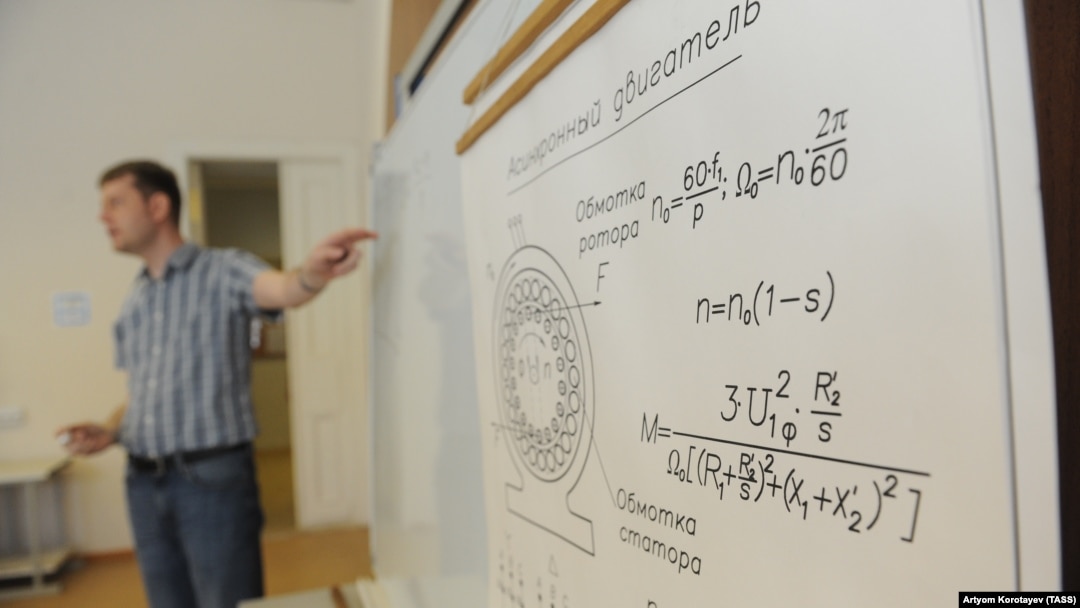 Асинхронный двигатель
Обмотка
ротора
n₀=60·f₁/p; Ω₀=n₀·2π/60
F
n=n₀(1-s)
M=3·U₁φ²·R₂′/s / Ω₀[(R₁+R₂′/s)²+(X₁+X₂′)²]
Обмотка
статора
Artyom Korotayev (TASS)